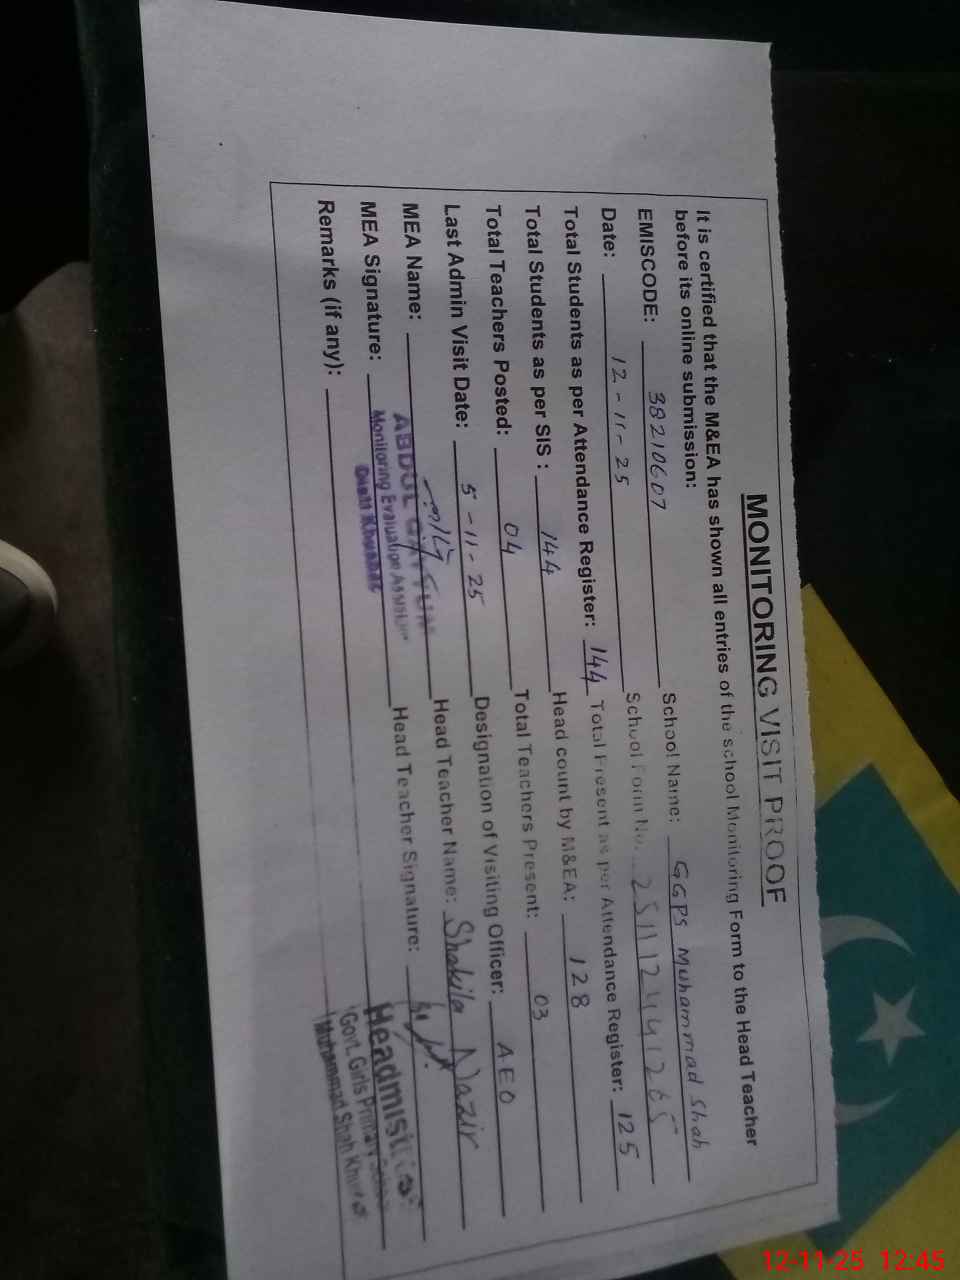 MONITORING VISIT PROOF
It is certified that the M&EA has shown all entries of the school Monitoring Form to the Head Teacher
before its online submission:
EMISCODE: 38210607 School Name: GGPS Muhammad Shah
Date: 12-11-25 School Form No. 251112441265
Total Students as per Attendance Register: 144 Total Present as per Attendance Register: 125
Total Students as per SIS : 144 Head count by M&EA: 128
Total Teachers Posted: 04 Total Teachers Present: 03
Last Admin Visit Date: 5-11-25 Designation of Visiting Officer: AEO
MEA Name: ABDUL Head Teacher Name: Shakila Nazir
MEA Signature: Monitoring Evaluation Assistant Head Teacher Signature:
Distt Khushab
Headmistress
Govt. Girls Primary School
Muhammad Shah
Remarks (if any):
12-11-25 12:45